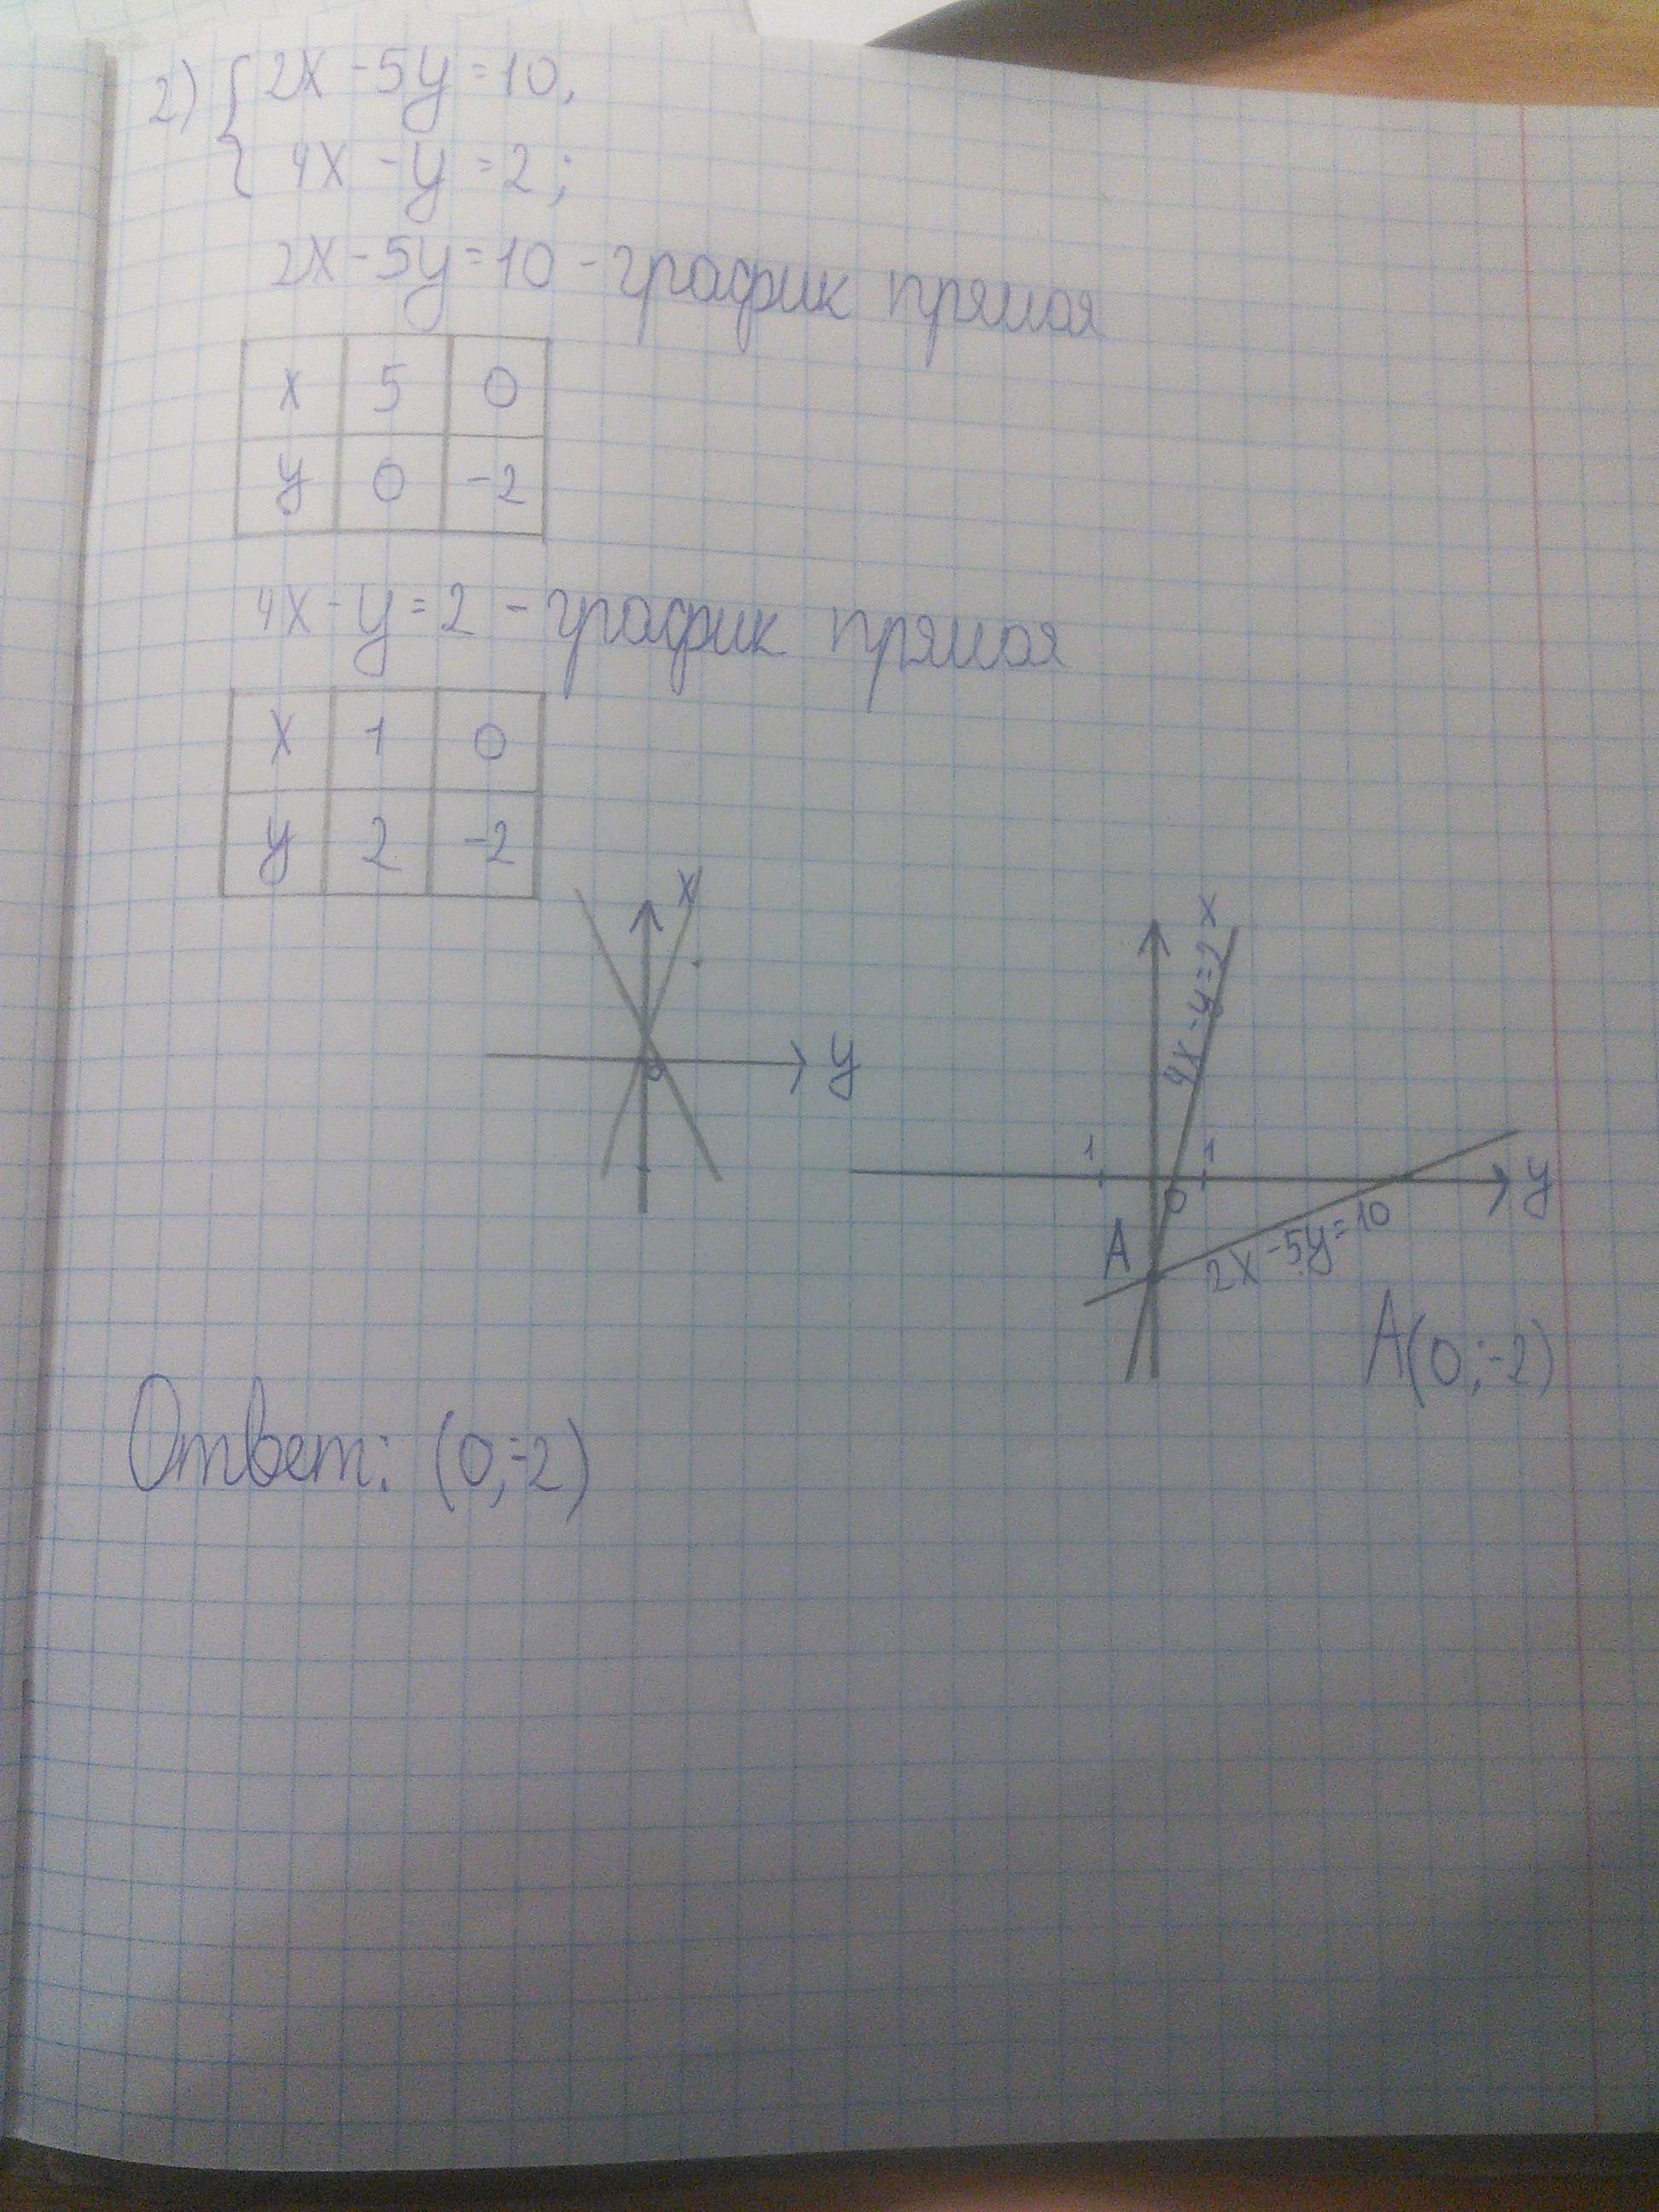 2) { 2x - 5y = 10,
4x - y = 2;
2x - 5y = 10 - график прямая
x 5 0
y 0 -2
4x - y = 2 - график прямая
x 1 0
y 2 -2
x
0
y
x
4x - y = 2
1 1
0
y
A
2x - 5y = 10
A(0;-2)
Ответ: (0;-2)